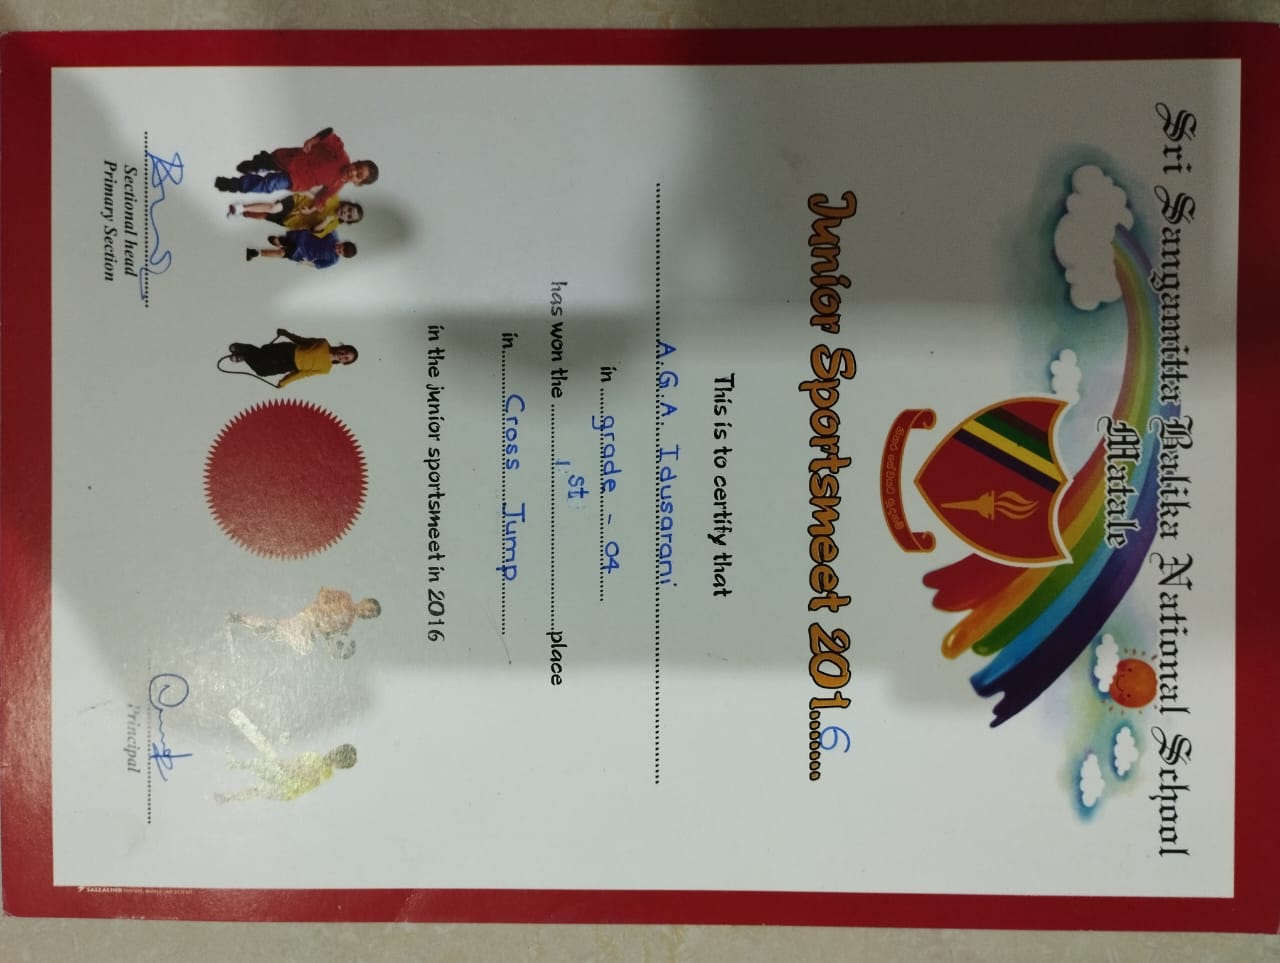 Sri Sangamitta Balika National School
Matale
Junior Sportsmeet 2016
This is to certify that
A.G.A. Idusarani
in grade - 04
has won the 1st place
in Cross Jump
in the junior sportsmeet in 2016
Sectional head
Primary Section
Principal